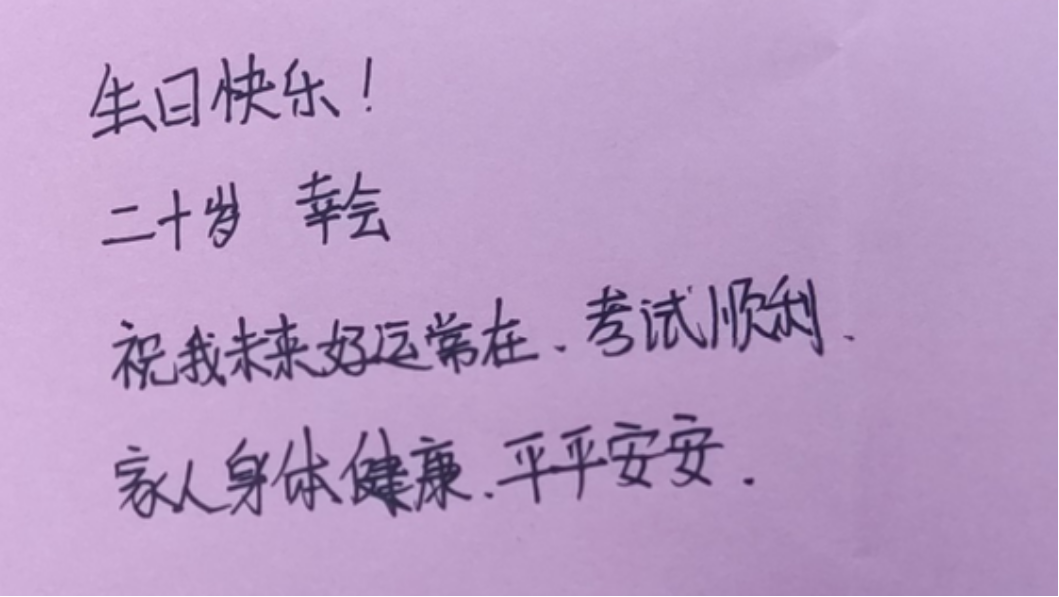 生日快乐！
二十岁 幸会
祝我未来好运常在.考试顺利.
家人身体健康.平平安安.